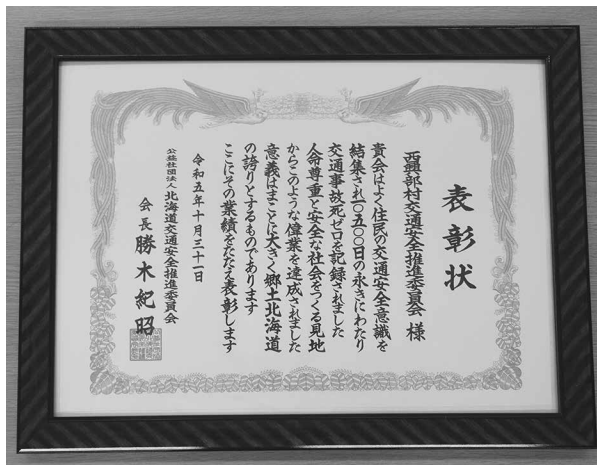 表彰状
西興部村交通安全推進委員会 様
貴会はよく住民の交通安全意識を
結集され一〇五〇〇日の永きにわたり
交通事故死ゼロを記録されました
人命尊重と安全な社会をつくる見地
からこのような偉業を達成されました
意義はまことに大きく郷土北海道
の誇りとするものであります
ここにその業績をたたえ表彰します
令和五年十月三十一日
公益社団法人 北海道交通安全推進委員会
会長 勝木紀昭